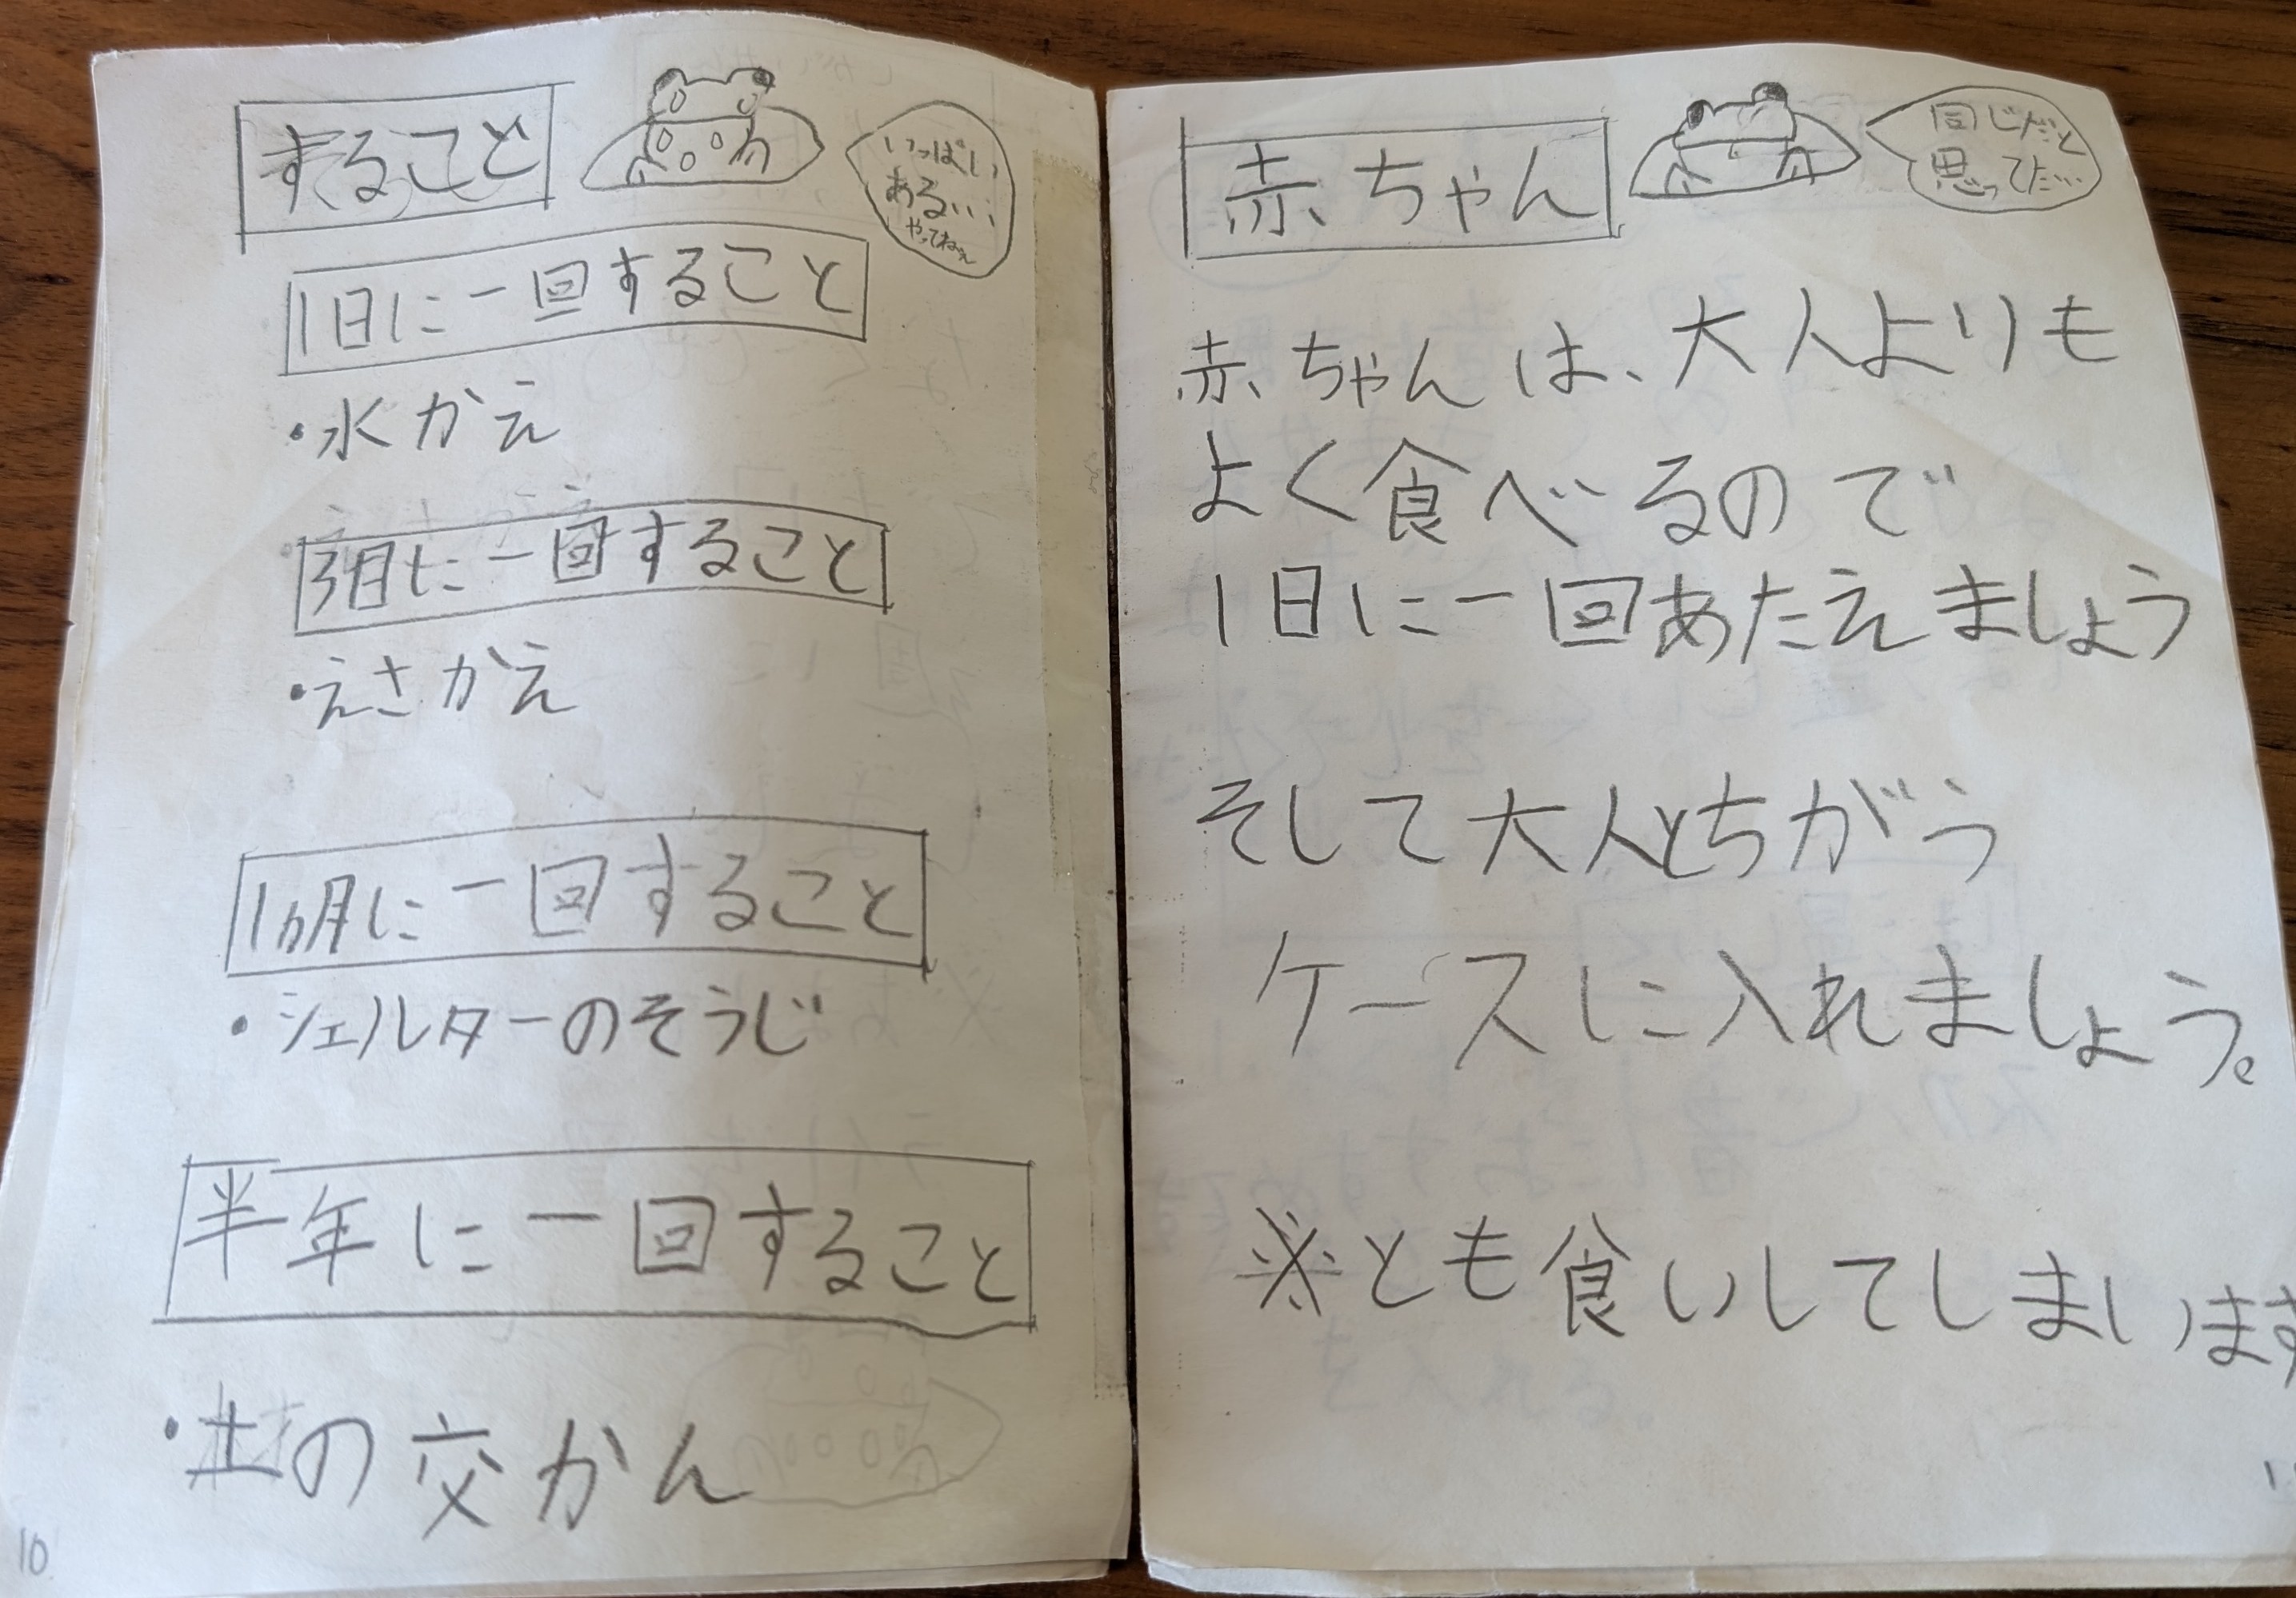 すること
いっぱい
ある…
やってねぇ
1日に一回すること
・水かえ
3日に一回すること
・えさかえ
1ヵ月に一回すること
・シェルターのそうじ
半年に一回すること
・土の交かん
10
赤ちゃん
同じだと
思ってた…
赤ちゃんは、大人よりも
よく食べるので
1日に一回あたえましょう
そして大人とちがう
ケースに入れましょう。
※とも食いしてしまいます